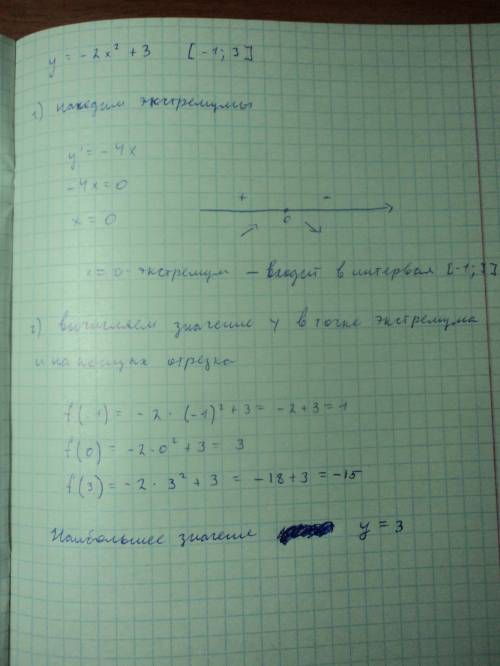 y = -2x² + 3 [-1; 3]
1) находим экстремумы
y' = -4x
-4x = 0
x = 0
+ -
0
x = 0 - экстремум - входит в интервал [-1; 3]
2) вычисляем значение y в точке экстремума
и на концах отрезка
f(-1) = -2 · (-1)² + 3 = -2 + 3 = 1
f(0) = -2 · 0² + 3 = 3
f(3) = -2 · 3² + 3 = -18 + 3 = -15
Наибольшее значение y = 3